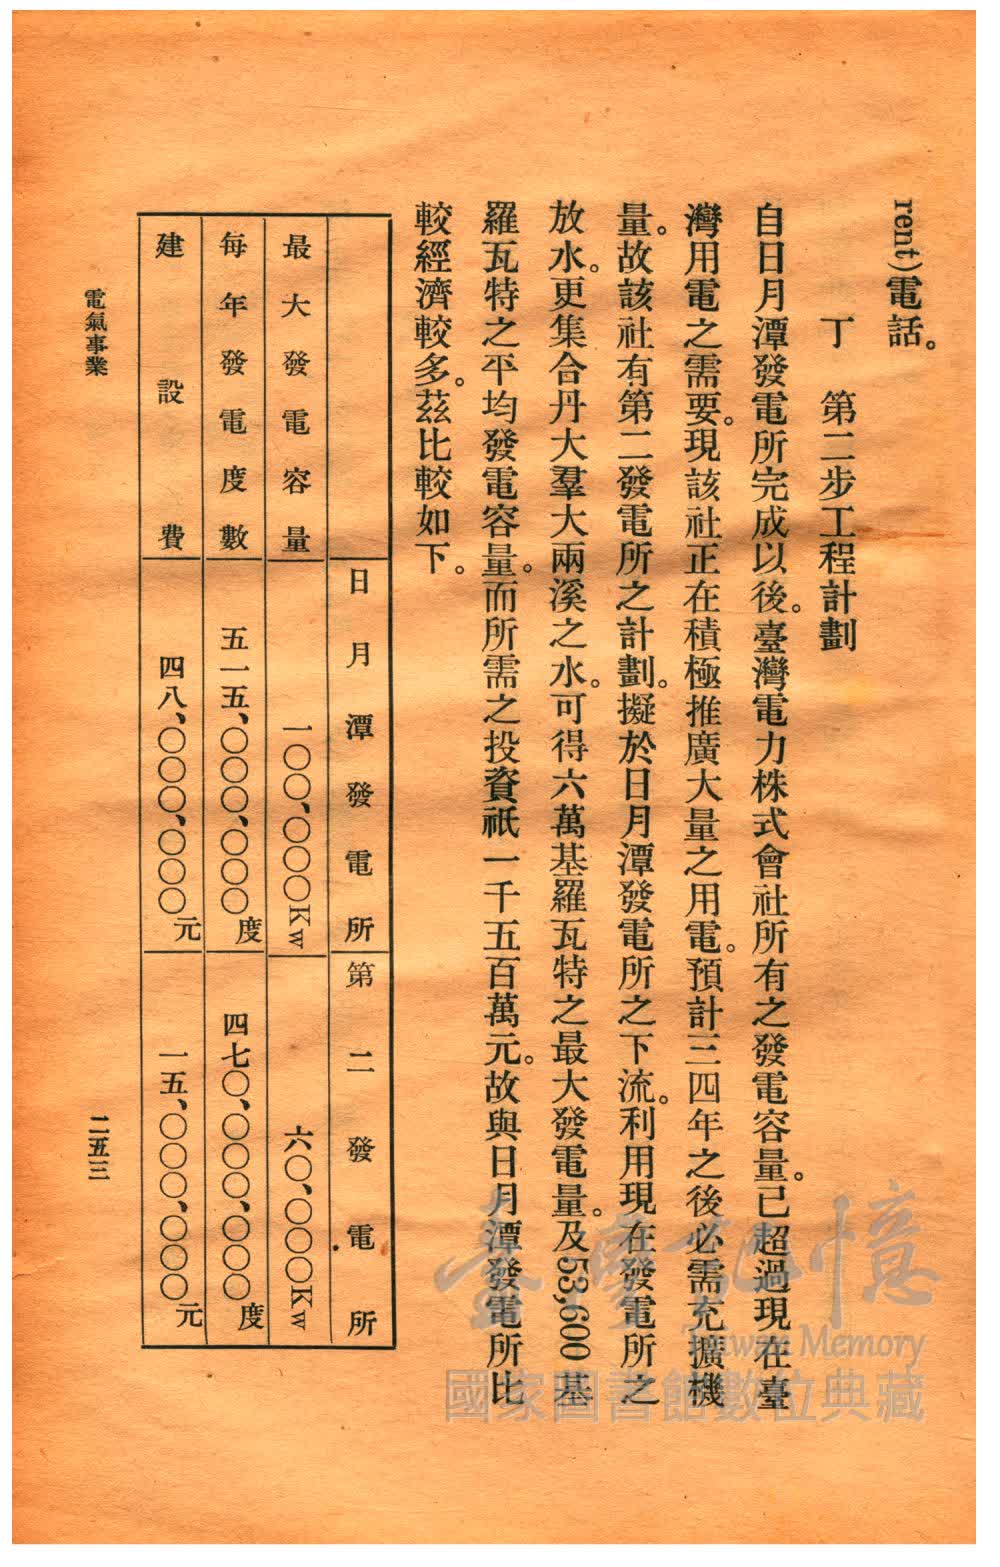 rent)電話。
丁　第二步工程計劃
自日月潭發電所完成以後。臺灣電力株式會社所有之發電容量。已超過現在臺
灣用電之需要。現該社正在積極推廣大量之用電。預計三四年之後必需充擴機
量。故該社有第二發電所之計劃。擬於日月潭發電所之下流。利用現在發電所之
放水。更集合丹大羣大兩溪之水。可得六萬基羅瓦特之最大發電量。及53,600基
羅瓦特之平均發電容量。而所需之投資祇一千五百萬元。故與日月潭發電所比
較經濟較多。茲比較如下。
日月潭發電所　第二發電所
最大發電容量　一〇〇、〇〇〇Kw　六〇、〇〇〇Kw
每年發電度數　五一五、〇〇〇、〇〇〇度　四七〇、〇〇〇、〇〇〇度
建設費　四八、〇〇〇、〇〇〇元　一五、〇〇〇、〇〇〇元
電氣事業
二五三
臺灣記憶
Taiwan Memory
國家圖書館數位典藏